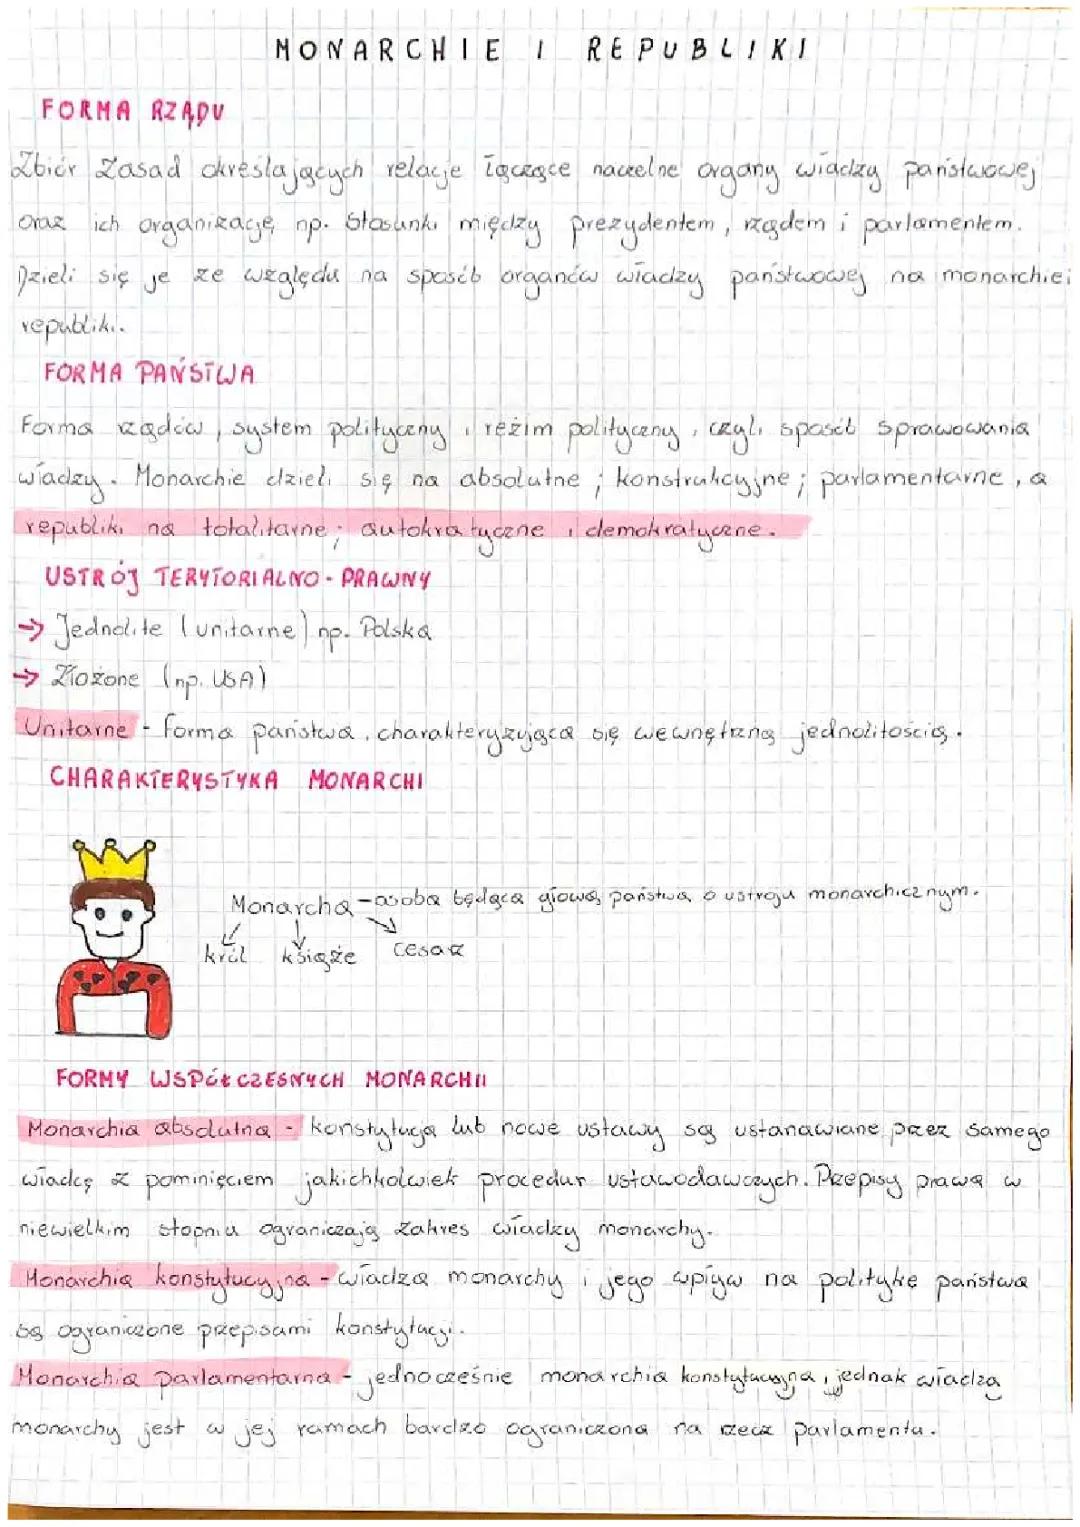 MONARCHIE I REPUBLIKI
FORMA RZĄDU
Zbiór zasad określających relacje łączące naczelne organy władzy państwowej
oraz ich organizację, np. Stosunki między prezydentem, rządem i parlamentem.
Dzieli się je ze względu na sposób organów władzy państwowej na monarchie i
republiki.
FORMA PAŃSTWA
Forma rządów, system polityczny i reżim polityczny, czyli sposób sprawowania
władzy. Monarchie dzieli się na absolutne; konstrukcyjne; parlamentarne, a
republiki na totalitarne; autokratyczne i demokratyczne.
USTRÓJ TERYTORIALNO-PRAWNY
→ Jednolite (unitarne) np. Polska
→ Złożone (np. USA)
Unitarne - forma państwa, charakteryzująca się wewnętrzną jednolitością.
CHARAKTERYSTYKA MONARCHI
Monarcha - osoba będąca głową państwa o ustroju monarchicznym.
król książe cesarz
FORMY WSPÓŁCZESNYCH MONARCHII
Monarchia absolutna - konstytucja lub nowe ustawy są ustanawiane przez samego
władcę z pominięciem jakichkolwiek procedur ustawodawczych. Przepisy prawa w
niewielkim stopniu ograniczają zakres władzy monarchy.
Monarchia konstytucyjna - władza monarchy i jego wpływ na politykę państwa
są ograniczone przepisami konstytucji.
Monarchia parlamentarna - jednocześnie monarchia konstytucyjna, jednak władza
monarchy jest w jej ramach bardzo ograniczona na rzecz parlamentu.